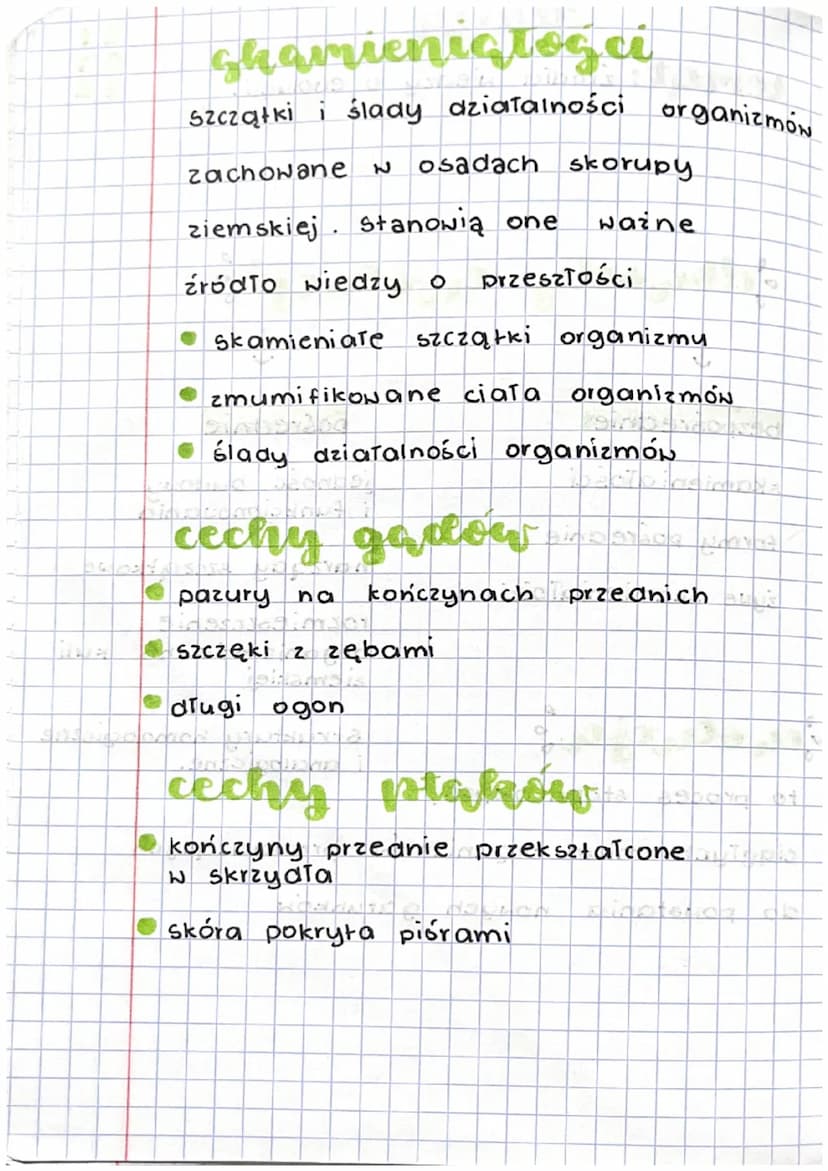 skamieniałości
szczątki i ślady działalności organizmów
zachowane w osadach skorupy
ziemskiej. Stanowią one ważne
źródło wiedzy o przeszłości
skamieniałe szczątki organizmu
zmumifikowane ciała organizmów
ślady działalności organizmów
cechy gadów
pazury na kończynach przednich
szczęki z zębami
długi ogon
cechy ptaków
kończyny przednie przekształcone
w skrzydła
skóra pokryta piórami